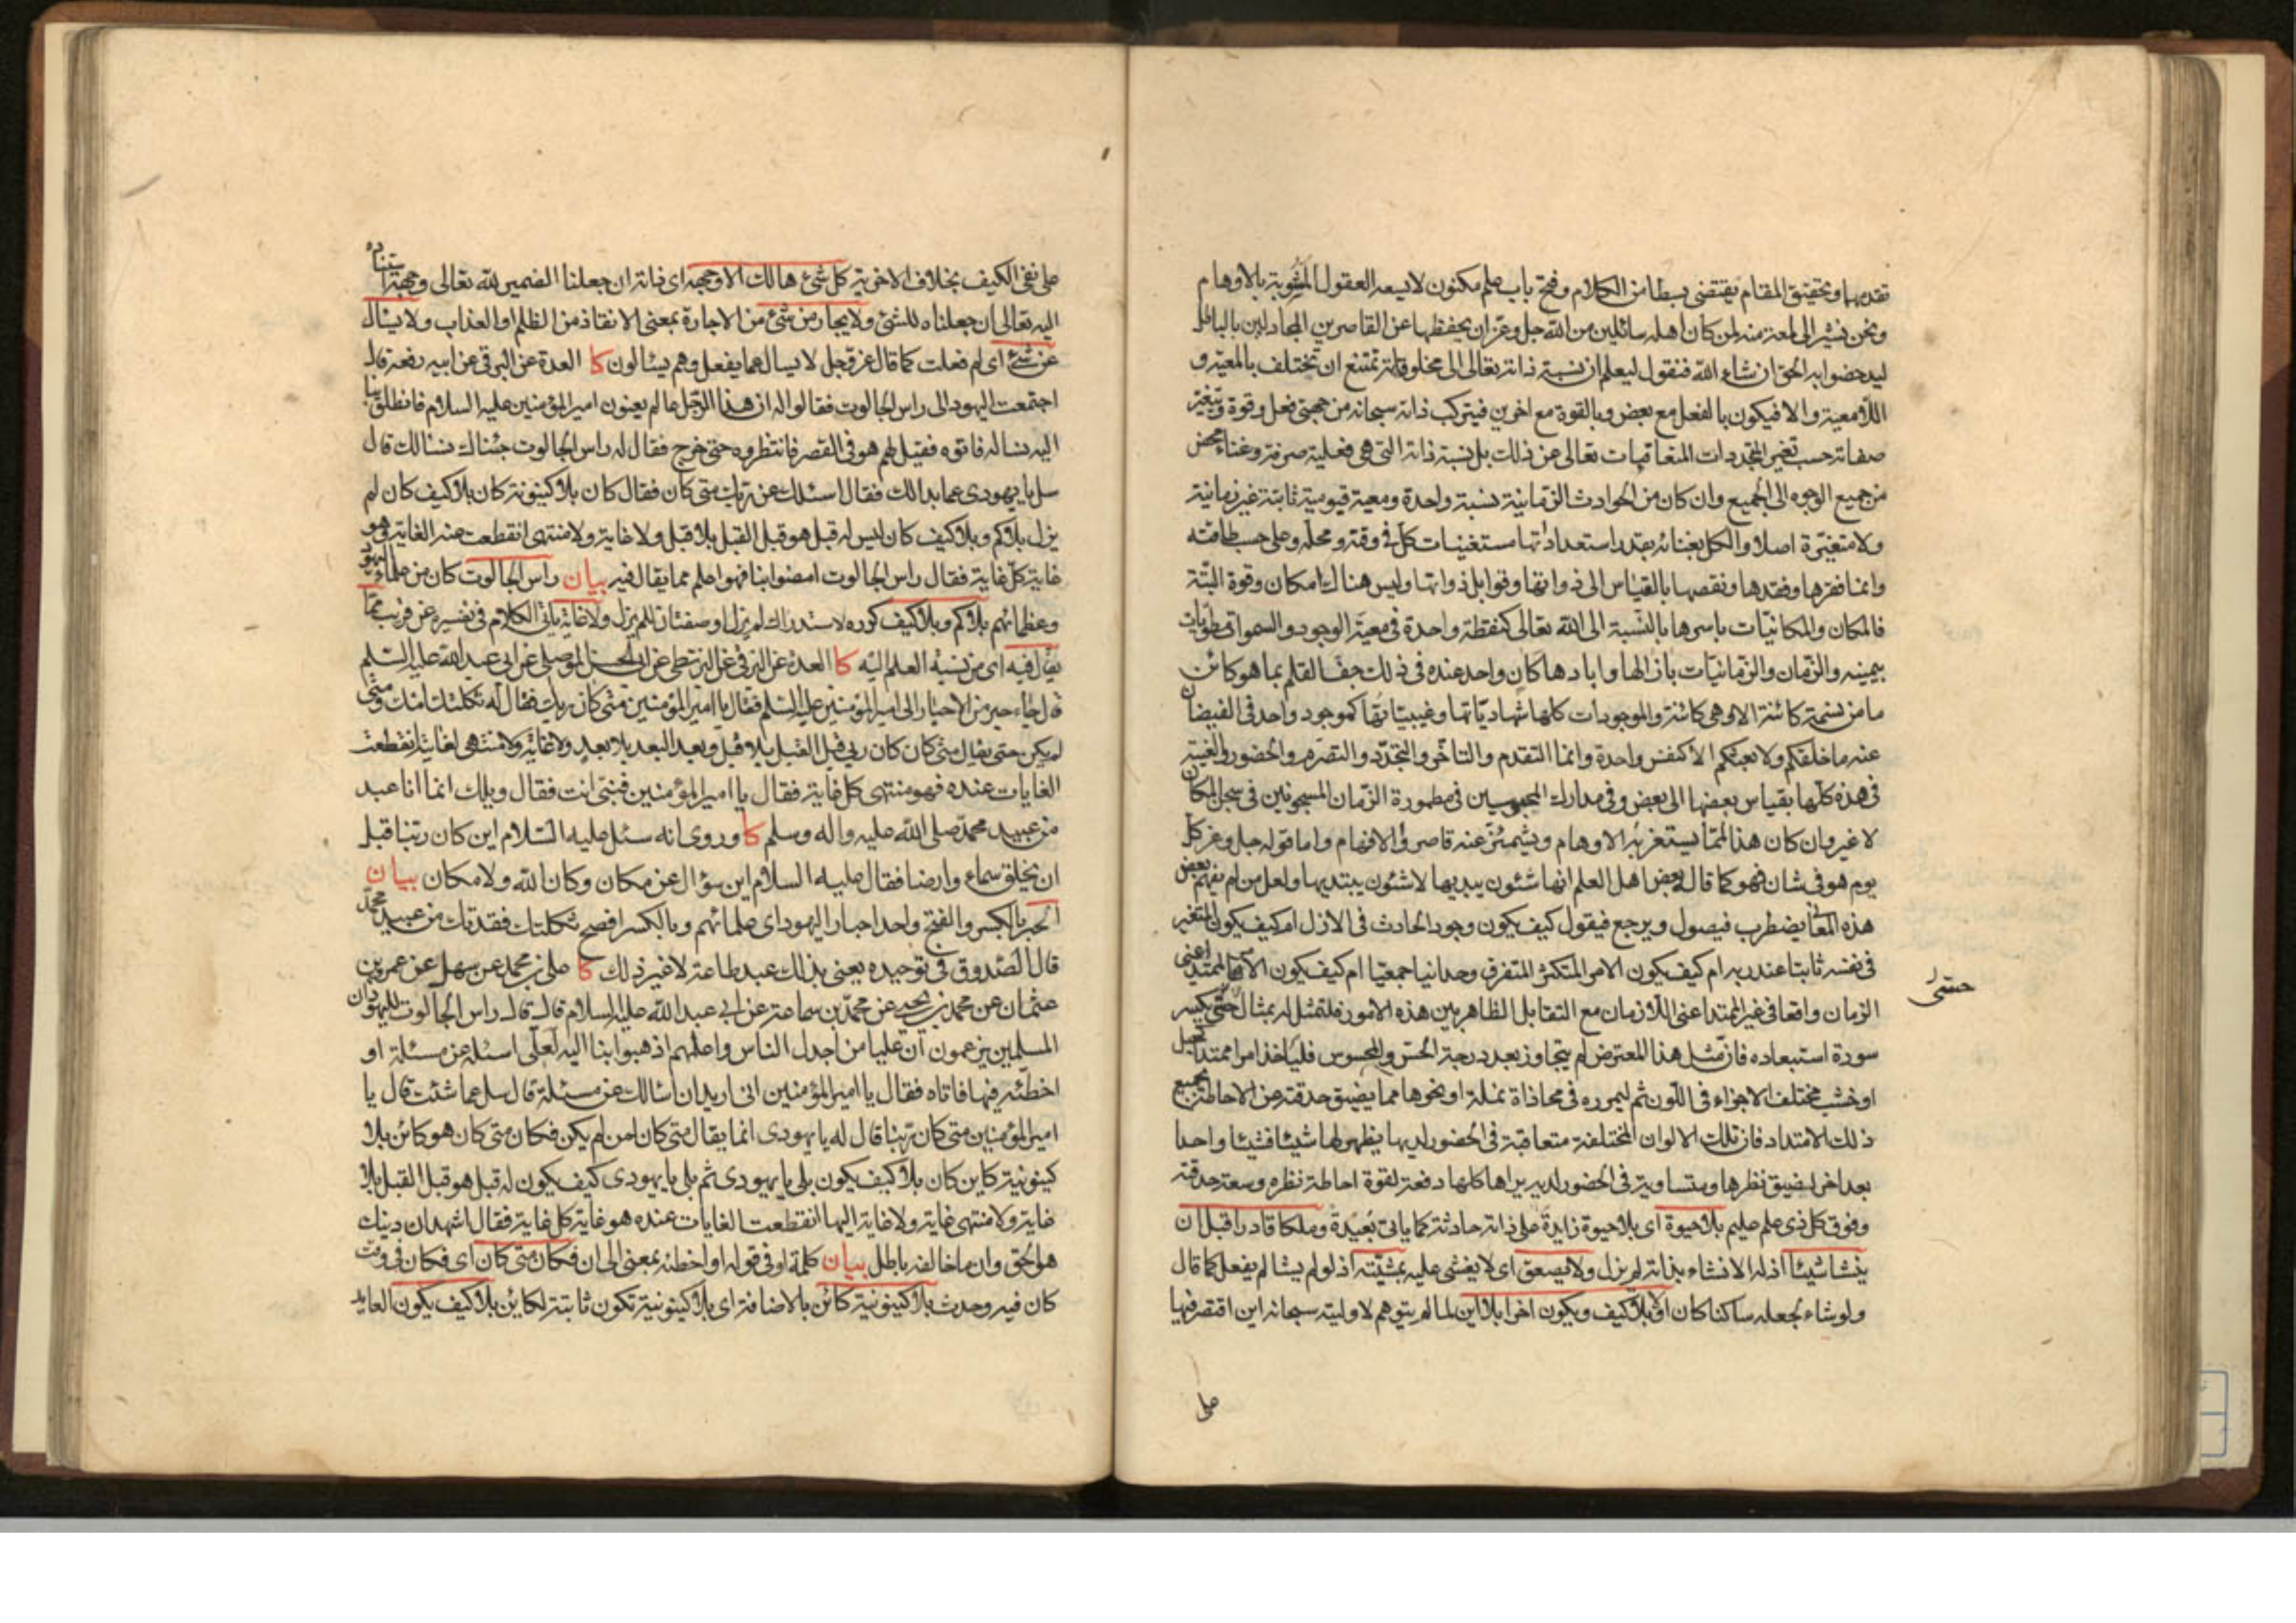 تقدمها وتحقيق المقام يقتضي بسطا من الكلام وفتح باب علم مكنون لا يسعه العقول المشوبة بالاوهام
ونحن نشير الى لمعة منه لمن كان اهله سائلين من الله جل وعز ان يحفظها عن القاصرين المجادلين بالباطل
ليدحضوا به الحق ان شاء الله فنقول ليعلم ان نسبة ذاته تعالى الى مخلوقاته تمتنع ان تختلف بالمعية و
اللامعية والا فيكون بالفعل مع بعض وبالقوة مع اخرين فيتركب ذاته سبحانه من جهتي فعل وقوة وتتغير
صفاته حسب تغير المتجددات المتعاقبات تعالى عن ذلك بل نسبة ذاته التي هي فعلية صرفة وغناء محض
من جميع الوجوه الى الجميع وان كان من الحوادث الزمانية نسبة واحدة ومعية قيومية ثابتة غير زمانية
ولا متغيرة اصلا والكل بغنائه بقدر استعداداتها مستغنيات كل في وقته ومحله وعلى حسب طاقته
وانما فقرها وفقدها ونقصها بالقياس الى ذواتها وقوابل ذواتها وليس هناك امكان وقوة البتة
فالمكان والمكانيات باسرها بالنسبة الى الله تعالى كنقطة واحدة في معية الوجود والسموات مطويات
بيمينه والزمان والزمانيات بازالها وابادها كان واحد عنده في ذلك جف القلم بما هو كائن
ما من نسمة كائنة الا وهي كائنة والموجودات كلها شهادياتها وغيبياتها كموجود واحد في الفيضان
عنه ما خلقكم ولا بعثكم الا كنفس واحدة وانما التقدم والتاخر والتجدد والتصرم والحضور والغيبة
في هذه كلها بقياس بعضها الى بعض وفي مدارك المحبوسين في مطمورة الزمان المسجونين في سجن المكان
لا غير وان كان هذا لمما يستغربه الاوهام ويشمئز عنه قاصروا الافهام واما قوله جل وعز كل
يوم هو في شان فهو كما قال بعض اهل العلم انها شئون يبديها لا شئون يبتديها ولعل من لم يفهم بعض
هذه المعاني يضطرب فيصول ويرجع فيقول كيف يكون وجود الحادث في الازل ام كيف يكون المتغير
في نفسه ثابتا عند ربه ام كيف يكون الامر المتكثر المتفرق وحدانيا جمعيا ام كيف يكون الامر الممتد اعني
الزمان واقعا في غير الممتد اعني اللازمان مع التقابل الظاهر بين هذه الامور فلنمثل له بمثال حسي يكسر
حسي
سورة استبعاده فان مثل هذا المعترض لم يتجاوز بعد درجة الحس والمحسوس فلياخذ امرا ممتدا كحبل
او خشب مختلف الاجزاء في اللون ثم ليمرره في محاذاة نملة او نحوها مما يضيق حدقته عن الاحاطة بجميع
ذلك الامتداد فان تلك الالوان المختلفة متعاقبة في الحضور لديها يظهر لها شيئا فشيئا واحدا
بعد اخر لضيق نظرها ومتساوية في الحضور لديه يراها كلها دفعة لقوة احاطة نظره وسعة حدقته
وفوق كل ذي علم عليم بلا حيوة اي بلا حيوة زايدة على ذاته حادثة كما ياتي بُعيده وملكا قادرا قبل ان
ينشا شيئا اذ له الانشاء بذاته لم يزل ولا يصعق اي لا يغشى عليه بمشيته اذ لو لم يشا لم يفعل كما قال
ولو شاء لجعله ساكنا كان اولا بلا كيف ويكون اخرا بلا اين لما لم يتوهم لاوليته سبحانه اين اقتصر فيها
على
على نفي الكيف بخلاف الاخرية كل شئ هالك الا وجهه اي ذاته ان جعلنا الضمير لله تعالى وجهة استناده
اليه تعالى ان جعلناه للشئ ولا يجار من شئ من الاجارة بمعنى الانقاذ من الظلم او العذاب ولا يسئال
عن شئ اي لم فعلت كما قال عز وجل لا يسال عما يفعل وهم يسئالون كا العدة عن البرقي عن ابيه رفعه قال
اجتمعت اليهود الى راس الجالوت فقالوا له ان هذا الرجل عالم يعنون امير المؤمنين عليه السلام فانطلق بنا
اليه نساله فاتوه فقيل لهم هو في القصر فانتظروه حتى خرج فقال له راس الجالوت جئناك نسالك قال
سل يا يهودي عما بدالك فقال اسئلك عن ربك متى كان فقال كان بلا كينونة كان بلا كيف كان لم
يزل بلا كم وبلا كيف كان ليس له قبل هو قبل القبل بلا قبل ولا غاية ولا منتهى انقطعت عنه الغاية وهو
غاية كل غاية فقال راس الجالوت امضوا بنا فهو اعلم مما يقال فيه بيان راس الجالوت كان من علماء اليهود
وعظمائهم بلا كم وبلا كيف كرره لاستدراك لم يزل او صفتان للم يزل ولا غاية ياتي الكلام في تفسيره عن قريب مما
يقال فيه اي من نسبة العلم اليه كا العدة عن البرقي عن البزنطي عن ابي الحسن الموصلي عن ابي عبد الله عليه السلم
قال جاء حبر من الاحبار الى امير المؤمنين عليه السلم فقال يا امير المؤمنين متى كان ربك فقال له ثكلتك امك ومتى
لم يكن حتى يقال متى كان كان ربي قبل القبل بلا قبل وبعد البعد بلا بعد ولا غاية ولا منتهى لغايته انقطعت
الغايات عنده فهو منتهى كل غاية فقال يا امير المؤمنين فنبي انت فقال ويلك انما انا عبد
من عبيد محمد صلى الله عليه واله وسلم كا وروى انه سئل عليه السلام اين كان ربنا قبل
ان يخلق سماء وارضا فقال عليه السلام اين سؤال عن مكان وكان الله ولا مكان بيان
الحبر بالكسر والفتح واحد احبار اليهود اي علمائهم وبالكسر افصح ثكلتك فقدتك من عبيد محمد
قال الصدوق في توحيده يعني بذلك عبد طاعة لا غير ذلك كا علي بن محمد عن سهل عن عمرو بن
عثمان عن محمد بن يحيى عن محمد بن سماعة عن ابي عبد الله عليه السلام قال قال راس الجالوت لليهود ان
المسلمين يزعمون ان عليا من اجدل الناس واعلمهم اذهبوا بنا اليه لعلي اسئله عن مسئلة او
اخطئه فيها فاتاه فقال يا امير المؤمنين اني اريد ان اسالك عن مسئلة قال سل عما شئت قال يا
امير المؤمنين متى كان ربنا قال له يا يهودي انما يقال متى كان لمن لم يكن فكان متى كان هو كائن بلا
كينونية كاين كان بلا كيف يكون بلى يا يهودي ثم بلى يا يهودي كيف يكون له قبل هو قبل القبل بلا
غاية ولا منتهى غاية ولا غاية اليها انقطعت الغايات عنده هو غاية كل غاية فقال اشهد ان دينك
هو الحق وان ما خالفه باطل بيان كلمة او في قوله او اخطئه بمعنى الى ان فكان متى كان اي فكان في وقت
كان فيه وحدث بلا كينونية كائن بالاضافة اي بلا كينونية تكون ثابتة لكاين بلا كيف يكون العايد